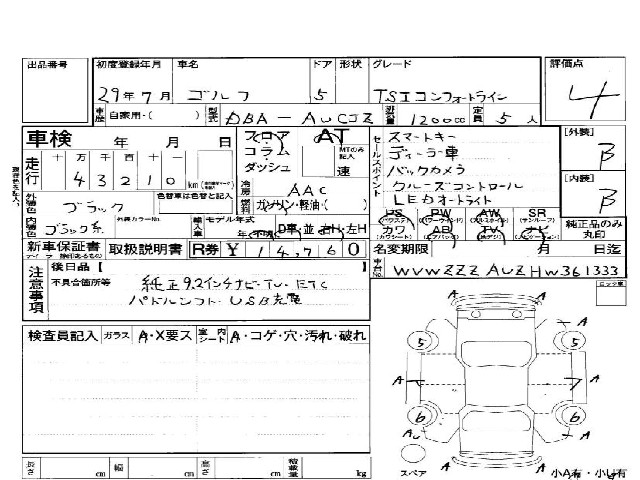 出品番号 初度登録年月 車名 ドア 形状 グレード 評価点
29年7月 ゴルフ 5 TSIコンフォートライン 4
車歴 自家用・( ) 型式 DBA-AUCJZ 排気量 1200cc 定員 5人
車検 年 月 日 フロア コラム ダッシュ AT MTのみ記入 速
走行 十万千百十一 43210 km
セールスポイント
スマートキー
ディーラー車
バックカメラ
クルーズコントロール
LEDオートライト
[外装] B
[内装] B
冷房 AAC
燃料 ガソリン・軽油・( )
外装色 ブラック 色替車は色替と記入
内装色 ブラック系 外装カラーNo. 輸入車 モデル年式 年(不明) D車・並 右H・左H
PS PW AW SR
カワ AB TV ナビ
純正品のみ丸印
新車保証書 取扱説明書 R券 ¥14,760
名変期限 月 日迄
車台No. WVWZZZAUZHW361333
注意事項
後日品【
不具合箇所等
純正9.2インチナビ・TV・ETC
パドルシフト・USB充電
検査員記入 ガラス A・X要ス 室内シート A・コゲ・穴・汚れ・破れ
A A
5 5
A A
6 6
A A
スペア 小A有・小U有
長さ cm 幅 cm 高さ cm 積載量 kg